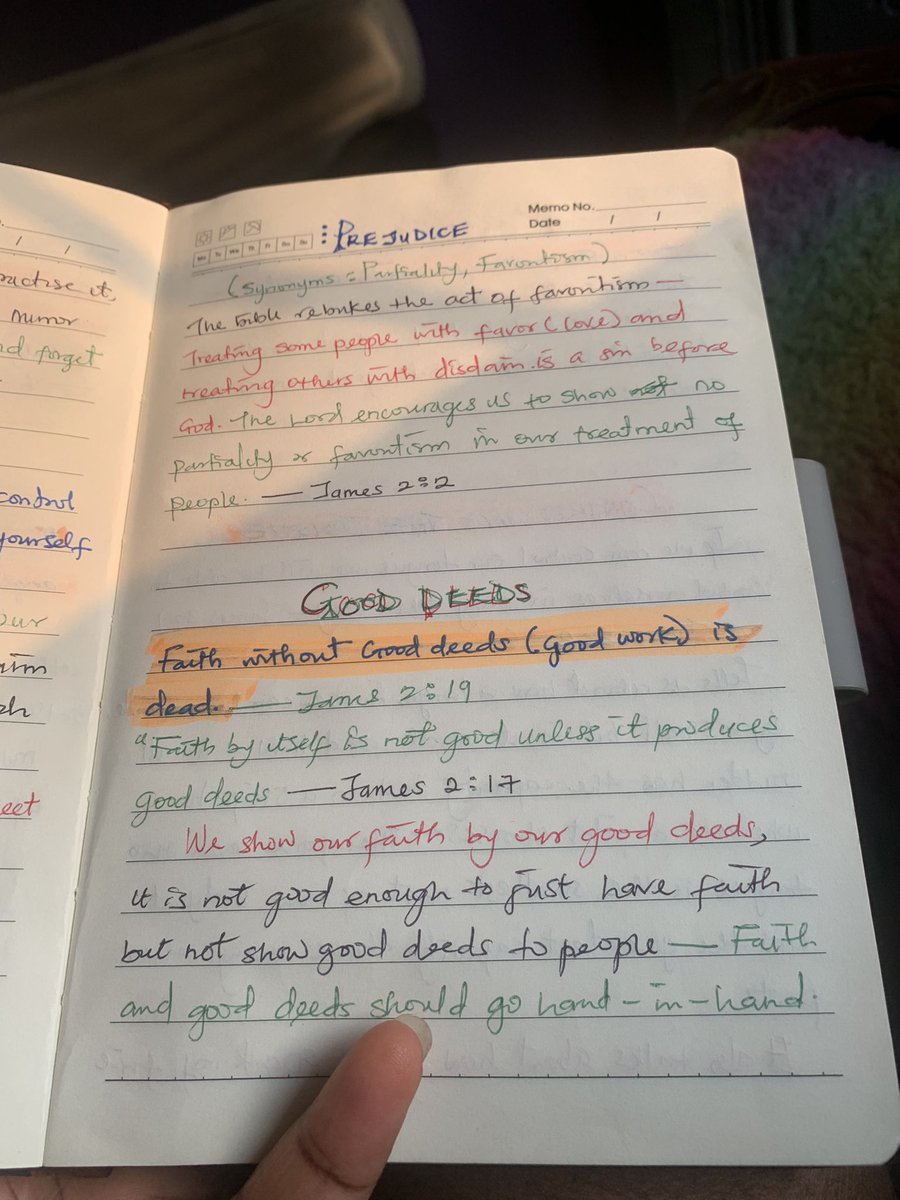 / /
ractise it,
rumor
nd forget
control
yourself
our
eet
Memo No.
Date / /
Mo Tu We Th Fr Sa Su
: PREJUDICE
(Synonyms : Partiality, Favoritism)
The Bible rebukes the act of favoritism —
Treating some people with favor (love) and
treating others with disdain is a sin before
God. The Lord encourages us to show not no
partiality or favoritism in our treatment of
people. — James 2:2
GOOD DEEDS
Faith without Good deeds (good work) is
dead. — James 2:19
"Faith by itself is not good unless it produces
good deeds — James 2:17
We show our faith by our good deeds,
it is not good enough to just have faith
but not show good deeds to people — Faith
and good deeds should go hand-in-hand.